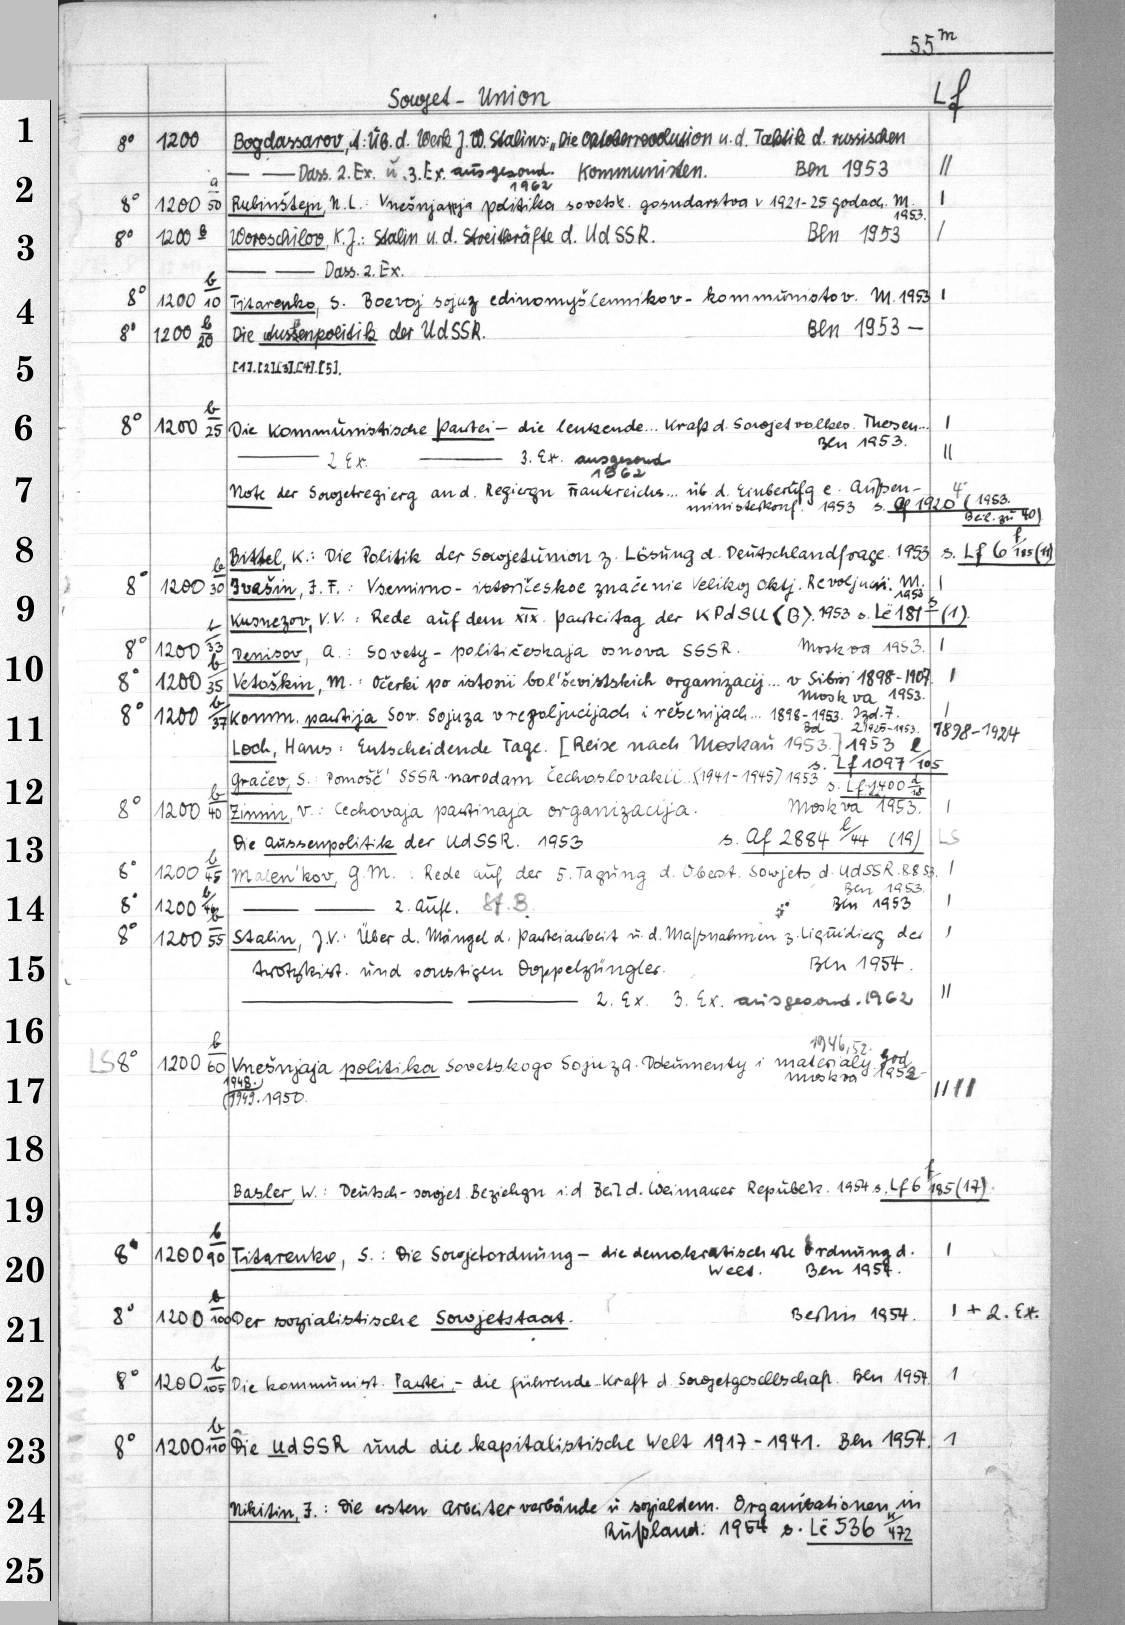 55m
Sowjet-Union Lf
1
8° 1200 Bogdassarov, A.: Üb. d. Werk J. W. Stalins: „Die Oktoberrevolution u. d. Taktik d. russischen
— — Dass. 2. Ex. u. 3. Ex. ausgesond. 1962 Kommunisten. Bln 1953 ||
2
8° 1200 a/50 Rubinštejn, N. L.: Vnešnjaja politika sovetsk. gosudarstva v 1921-25 godach. M. 1953. |
3
8° 1200 b Woroschilov, K. J.: Stalin u. d. Streitkräfte d. UdSSR. Bln 1953 |
— — Dass. 2. Ex.
4
8° 1200 b/10 Titarenko, S. Boevoj sojuz edinomyšlennikov-kommunistov. M. 1953 |
8° 1200 b/20 Die Aussenpolitik der UdSSR. Bln 1953 —
5
[1].[2].[3].[4].[5].
6
8° 1200 b/25 Die Kommunistische Partei – die lenkende... Kraft d. Sowjetvolkes. Thesen... |
Bln 1953.
— 2 Ex. — 3. Ex. ausgesond. 1962 ||
7
Note der Sowjetregierg an d. Regiergn Frankreichs... üb d. Einberufg e. Außen-
ministerkonf. 1953 s. Af 1920 4° (1953. Beil. zu 40)
8
Bittel, K.: Die Politik der Sowjetunion z. Lösung d. Deutschlandfrage. 1953 s. Lf 6 f/185 (11)
8° 1200 b/30 Ivašin, I. F.: Vsemirno-istoričeskoe značenie Velikoj Oktj. Revoljucii. M. 1953 |
9
Kusnezov, V. V.: Rede auf dem XIX. Parteitag der KPdSU (B). 1953 s. Lë 181 s (1).
8° 1200 b/33 Denisov, A.: Sovety - političeskaja osnova SSSR. Moskva 1953. |
10
8° 1200 b/35 Vetoškin, M.: Očerki po istorii bol'ševistskich organizacij... v Sibiri 1898-1907. |
Moskva 1953.
8° 1200 b/37 Komm. partija Sov. Sojuza v rezoljucijach i rešenijach... 1898-1953. Izd. 7. |
11
Bd 2) 1925-1953. 1898-1924
Loch, Hans: Entscheidende Tage. [Reise nach Moskau 1953.] 1953
s. Lf 1097 l/105
Gračev, S.: Pomošč' SSSR narodam Čechoslovakii (1941-1945) 1953 s. Lf 1400
12
8° 1200 b/40 Zimin, V.: Cechovaja partinaja organizacija. Moskva 1953. |
13
Die Aussenpolitik der UdSSR. 1953 s. Af 2884 l/44 (19) LS
8° 1200 b/45 Malen'kov, G. M.: Rede auf der 5. Tagung d. Oberst. Sowjets d. UdSSR. 8.8.53. |
Bln 1953.
14
8° 1200 b — — 2. Aufl. St.B. Bln 1953 |
8° 1200 b/55 Stalin, J. V.: Über d. Mängel d. Parteiarbeit u. d. Maßnahmen z. Liquidierg der |
15
trotzkist. und sonstigen Doppelzüngler. Bln 1954.
— — 2. Ex. 3. Ex. ausgesond. 1962 ||
16
1946, 52.
LS 8° 1200 b/60 Vnešnjaja politika Sovetskogo Sojuza. Dokumenty i materialy god
Moskva 1952-
17
1948.
(1949. 1950. ||||
18
19
Basler, W.: Deutsch-sowjet. Beziehgn i. d Zeit d. Weimarer Republik. 1954 s. Lf 6 f/185 (17).
20
8° 1200 b/90 Titarenko, S.: Die Sowjetordnung – die demokratischste Ordnung d. |
Welt. Bln 1954.
21
8° 1200 b/100 Der sozialistische Sowjetstaat. Berlin 1954. | + 2. Ex.
22
8° 1200 b/105 Die kommunist. Partei, - die führende Kraft d Sowjetgesellschaft. Bln 1954. |
23
8° 1200 b/110 Die UdSSR und die kapitalistische Welt 1917-1941. Bln 1954. |
24
Nikitin, I.: Die ersten Arbeiterverbände u sozialdem. Organisationen in
Rußland. 1954 s. Lë 536 k/472
25